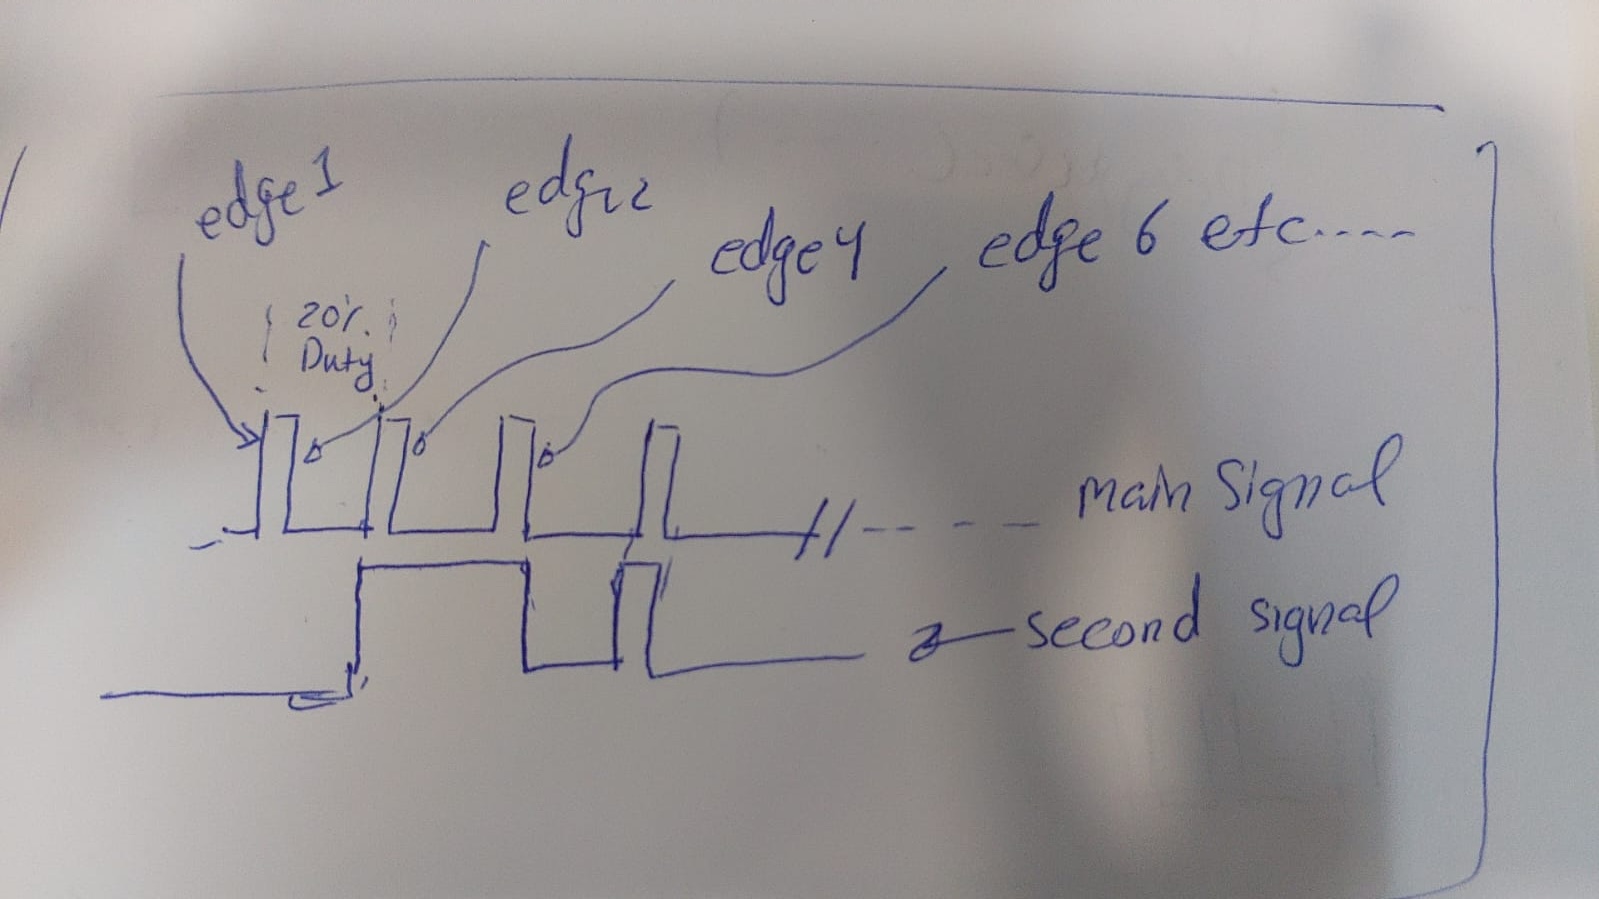 edge 1
edge 2
edge 4
edge 6 etc.----
20%.
Duty
main Signal
second signal